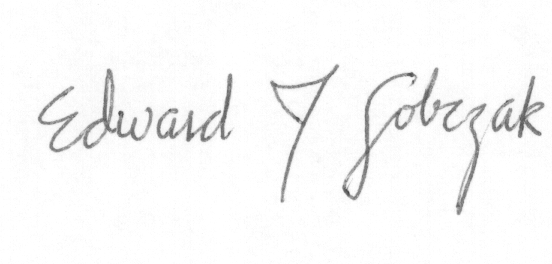 Edward T Sobczak